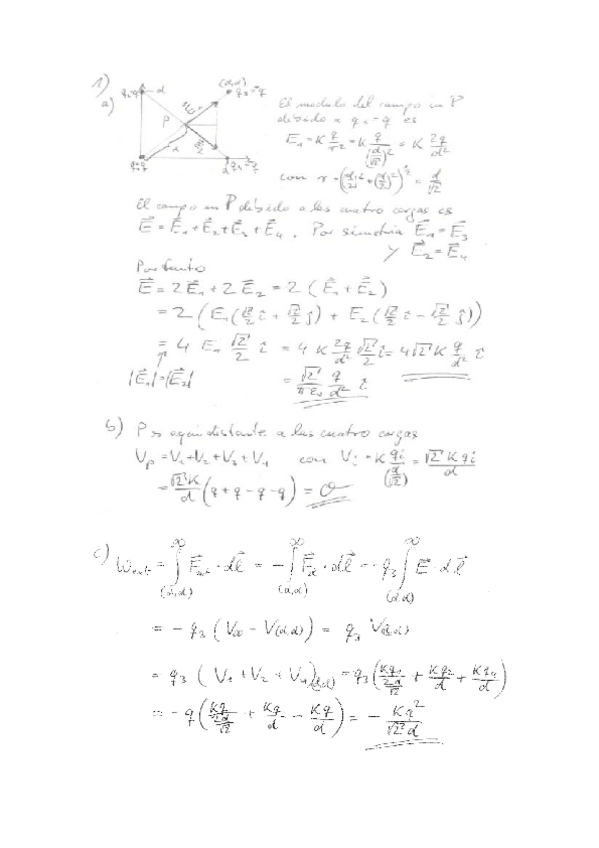 1)
a)
q₂=q d (d,d) q₃=-q
P E₁ E₂ r
q₁=q d q₄=-q
El modulo del campo en P
debido a q₁=q es
E₁ = K q/r² = K q/(d/√2)² = K 2q/d²
con r = ((d/2)² + (d/2)²)^½ = d/√2
El campo en P debido a las cuatro cargas es
E⃗ = E⃗₁ + E⃗₂ + E⃗₃ + E⃗₄. Por simetria E⃗₁ = E⃗₃
y E⃗₂ = E⃗₄
Por tanto
E⃗ = 2E⃗₁ + 2E⃗₂ = 2(E⃗₁ + E⃗₂)
= 2(E₁(√2/2 î + √2/2 ĵ) + E₂(√2/2 î - √2/2 ĵ))
= 4 E₁ √2/2 î = 4 K 2q/d² √2/2 î = 4√2 K q/d² î
↑
|E⃗₁|=|E⃗₂| = √2/πε₀ q/d² î
b) P es equidistante a las cuatro cargas
Vp = V₁+V₂+V₃+V₄ con Vᵢ = K qᵢ/(d/√2) = √2 K qᵢ/d
= √2 K/d (q + q - q - q) = 0
c) Wext = ∫_(d,d)^∞ F⃗ext · dl⃗ = - ∫_(d,d)^∞ F⃗el · dl⃗ = - q₃ ∫_(d,d)^∞ E⃗ · dl⃗
= - q₃ (V∞ - V(d,d)) = q₃ V(d,d)
= q₃ (V₁ + V₂ + V₄)(d,d) = q₃ (Kq₁/(2d/√2) + Kq₂/d + Kq₄/d)
= - q (Kq/(2d/√2) + Kq/d - Kq/d) = - Kq²/(√2 d)